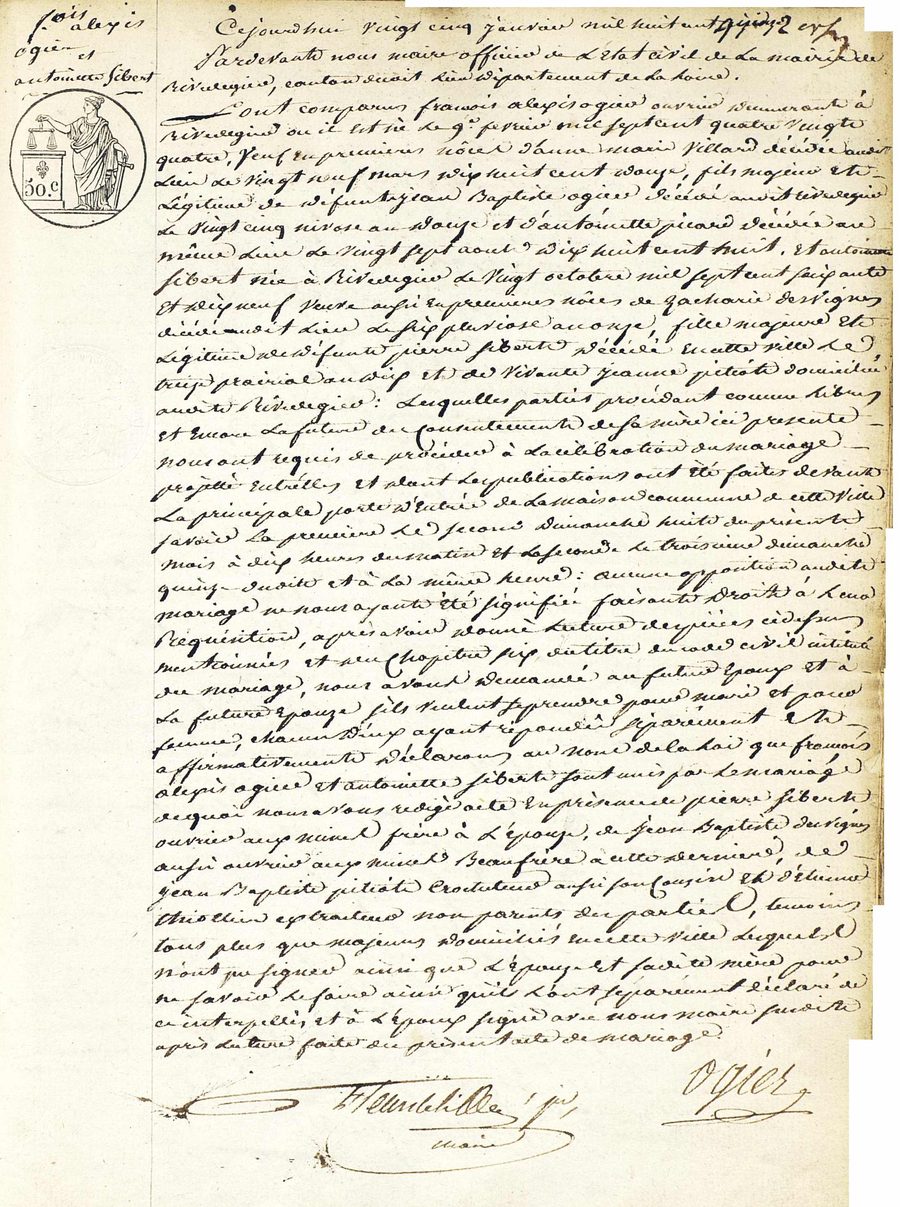 f.ois alexis
ogier
et
antoinette Sibert
50.c
Cejourdhui vingt cinq janvier mil huit cent quinze
Pardevante nous maire officier de L'Etat civil de La mairie de
Rivedegier, canton dudit Lieu département de La Loire.
Sont comparus francois alexis ogier ouvrier demeurante à
Rivedegier ou il Est né Le 9e fevrier mil sept cent quatre vingte
quatre, Veuf En premieres nôces d'anne marie Villard décédée audit
Lieu Le vingt neuf mars dix huit cent douze, fils majeur Et
Légitime de défunts jean Baptiste ogier décédé audit Rivedegier
Le vingt cinq nivose an douze et d'antoinette picard décédée au
même Lieu Le vingt sept aout dix huit cent huit. Et antoinette
Sibert née à Rivedegier Le vingt octobre mil sept cent soixante
Et dix neuf veuve aussi En premieres nôces de zacharie desvignes
décédé audit Lieu Le six pluviose an onze, fille majeure Et
Légitime de défunt pierre Siberte décédé En cette ville Le
treize prairial an dix Et de vivante jeanne pitiote domiciliée
audite Rivedegier: Lesquelles parties procédant comme Libres
Et Encore La future du Consentemente de sa mère ici presente
nous ont requis de procéder à La célébration du mariage
projetté Entr'elles Et dont Les publications ont Eté faites devant
La principale porte d'Entrée de La maison commune de cette Ville
savoir La premiere Le second dimanche huite du présente
mois à dix heures du matin Et La seconde Le troisieme dimanche
quinze dudite et à La même heure: aucune opposition audite
mariage ne nous ayante été signifiée faisante Droite à Leur
Réquisition, après avoir donné Lecture des pièces cidessus
mentionnées Et du Chapitre six du titre du code civil intitulé
du mariage, nous avons Demandé au future Epoux Et à
La future Epouze s'ils veulent se prendre pour mari et pour
femme, chacun d'eux ayant répondu séparément Et
affirmativemente déclarons au nom de La Loi que francois
alexis ogier Et antoinette Siberte sont unis par Le mariage
de quoi nous avons redigé acte En présence de pierre Siberte
ouvrier aux mines frère à L'Epouze, de jean Baptiste desvignes
aussi ouvrier aux mines Beaufrère à cette dernière, de
jean Baptiste pitiote Crocheteur aussi son Cousin Et d'Etienne
thiollier extraiteur non parents des parties, temoins
tous plus que majeurs domiciliés En cette Ville Lesquels
n'ont pu signer ainsi que L'Epouze Et sadite mère pour
ne savoir Le faire ainsi qu'ils L'ont séparément déclaré de
ce interpellés, Et à L'Epoux signé avec nous maire susdite
après Lecture faite du présent acte de mariage.
Ogier
maire